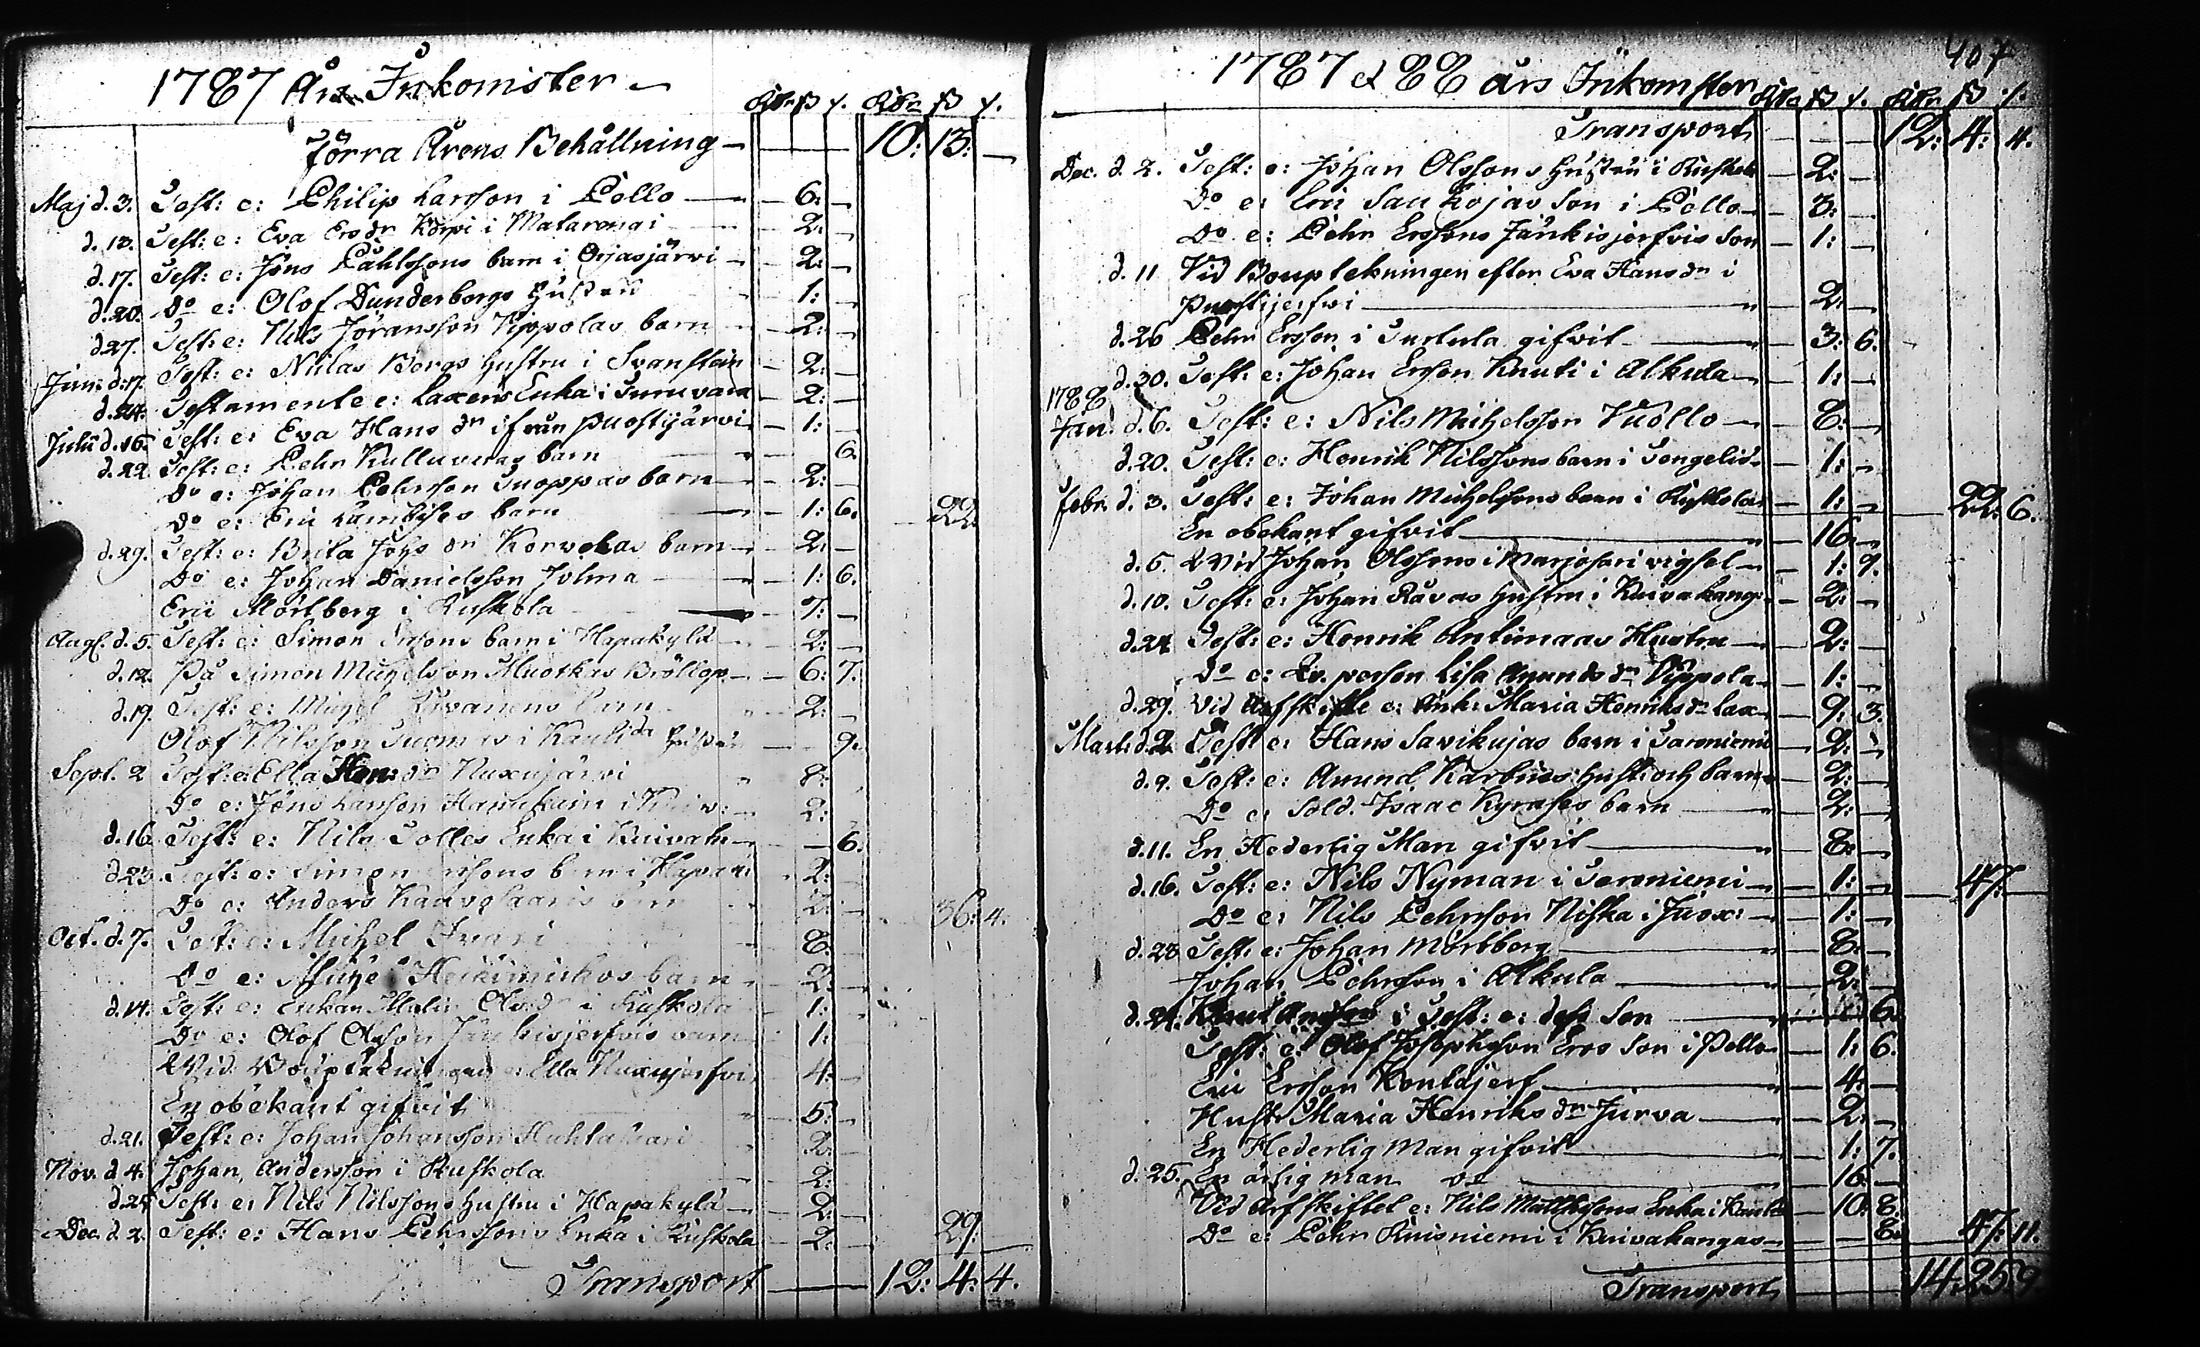 1787 Års Inkomster
Rdr ß ₰. Rdr ß ₰.
Förra Årens Behållning 10: 13:
Maj d. 3. Test: e: Philip Larsson i Pello 6:
d. 13. Test: e: Eva Ersdr Korpi i Matarengi 2:
d. 17. Test: e: Jöns Påhlssons barn i Orjasjärvi 2:
d. 20. Do e: Olof Dunderbergs Hustru 1:
d. 27. Test: e: Nils Joransson Vippolas barn 2:
Junii d. 17. Test: e: Niklas Bergs hustru i Svanstein 2:
d. 24. Testamente e: Laxens Enka i Turuvara 2:
Julii d. 15. Test: e: Eva Hans dr ifrån Puostijärvi 1:
d. 22. Test: e: Pehr Kulluveras barn 6.
Do e: Johan Pehrsson Tuoppas barn 2:
Do e: Eric Lambises barn 1: 6. 22.
d. 29. Test: e: Brita Johs dr Korvokas barn 2:
Do e: Johan Danielsson Jolma 1: 6.
Eric Mörtberg i Ruskola 7:
Aug. d. 5. Test: e: Simon barn i Hapakylä 2:
d. 12. På Simon Michelsson Muotkas Bröllop 6: 7.
d. 19. Test: e: Michel barn 2:
Olof Nilsson i hustru 9.
Sept. 2 Test: e: Ella Hen: dr Nuxujärvi 8:
Do e: Jöns Larsson i 2:
d. 16. Test: e: Nils Tolles Enka i Kuivak 6.
d. 23. Test: e: Simon b rn i Hapak 2:
Do e: Anders barn 2: 36: 4.
Oct. d. 7. Test: e: Michel 8:
Do e: Michel Heikimickos barn 2:
d. 14. Test: e: Enkan Malin Olsdr i Ruskola 1:
Do e: Olof Olsson Jänkisjerfvis barn 1:
Vid Bouptekningen e: Ella Nuxujerfvi 4:
En obekant gifvit 5:
d. 21. Test: e: Johan Johansson Huhta 2:
Nov. d. 4. Johan Andersson i Ruskola 2:
d. 25 Test: e: Nils Nilssons hustru i Hapakylä 2:
Dec. d. 2. Test: e: Hans Pehrssons Enka i Ruskola 2: 29:
Transport 12: 4: 4.
407
1787 et 88 års Inkomster
Rdr ß ₰. Rdr ß ₰.
Transport 12: 4: 4.
Dec. d. 2. Test: e: Johan Olssons Hustru i Ruskola 2:
Do e: Eric Saukojas son i Pello 3:
Do e: Pehr Erssons Jänkisjerfvis son 1:
d. 11 Vid Bouptekningen efter Eva Hansdr i
Puostijerfvi 2:
d. 26 Pehr Ersson i Turtula gifvit 3: 6.
d. 30. Test: e: Johan Ersson Knuti i Alkula 1:
1788
Jan. d. 6. Test: e: Nils Michelsson Vuollo 8:
d. 20. Test: e: Henrik Nilssons barn i Tengelis 1:
Febr. d. 3. Test: e: Johan Michelssons barn i Ruskola 1: 22: 6.
En obekant gifvit 16.
d. 5. Vid Johan Olssons i Marjosari vigsel 1: 9.
d. 10. Test: e: Johan Råvas hustru i Kuivakang: 2:
d. 24 Test: e: Henrik Antimaas Hustru 2:
Do e: Qv. person Lisa Amunds dr Vippola 1:
d. 29. Vid Arfskifte e: Enk: Maria Henriksdr lax 9: 3.
Mart: d. 2. Test: e: Hans Savikujas barn i Taroniemi 2:
d. 9. Test: e: Amund Karbuus hust: och barn 2:
Do e: Sold. Isaac Kyröses barn 2:
d. 11. En Hederlig Man gifvit 8:
d. 16. Test: e: Nils Nyman i Taroniemi 1: 47:
Do e: Nils Pehrsson Niska i Juox: 1:
d. 23 Test: e: Johan Mörtberg 8:
Johan Pehrsson i Alkula 2:
d. 24. i Test: e: dess Son 6.
Test: e: Olof Josephsson Eros Son i Pello 1: 6.
Eric Ersson Kontajerf 4:
Hust: Maria Henriks dr Jurva 2:
En Hederlig man gifvit 1: 7.
d. 25. En ärlig man do 16:
Vid Arfskiftet e: Nils Matthssons Enka i Kauli 10: 8.
Do e: Pehr Ruisniemi i Kuivakangas 8. 47: 11.
Transport 14. 25. 9.